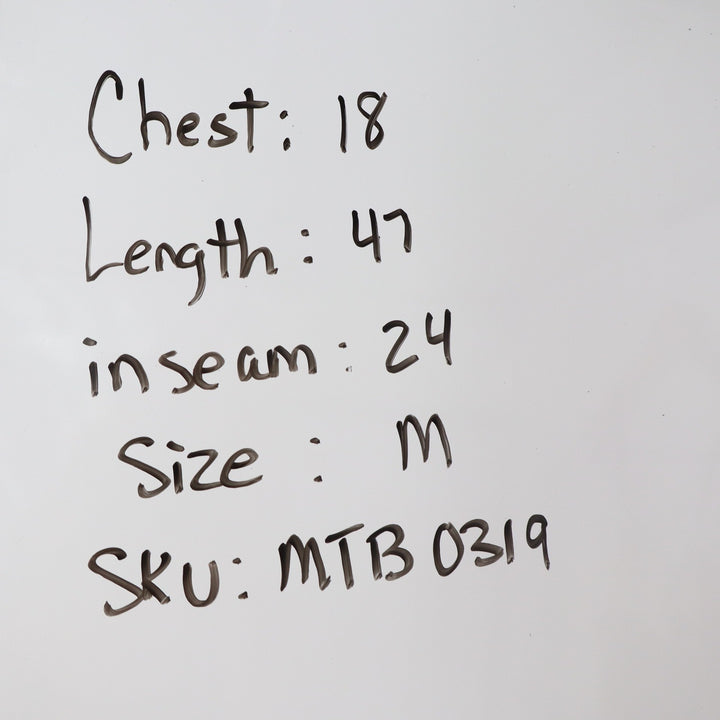 Chest: 18
Length: 47
inseam: 24
Size: M
SKU: MTB 0319